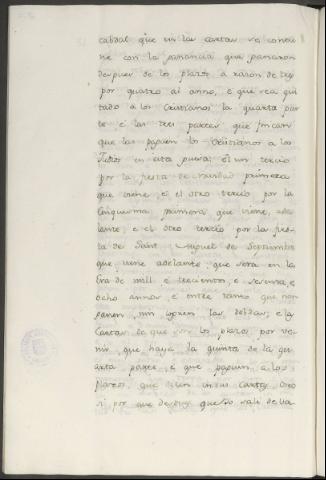 cabdal que en las cartas se contie
ne con la ganancia que ganaron
despues de los plazos a razón de tres
por quatro al anno, e que sea qui
tado a los Cristianos la quarta par
te e las tres partes que fincan
que las paguen los Cristianos a los
Judios en esta guisa: el un tercio
por la fiesta de Navidad primera
que viene, e el otro tercio por la
Cinquesma primera que viene, ade
lante, e el otro tercio por la fies
ta de Saint Miguel de Septiembre
que viene adelante, que sera en la
Era de mill e trecientos, e sesenta, e
ocho annos, e entre tanto que non
ganen, nin logren las debdas; e la
Cartas de que son los plazos por ve
nir, que haya la quinta de la qu
arta parte, e que paguen a los
plazos, que dicen en sus Cartas. Otro
si por que despues que Yo salí de la